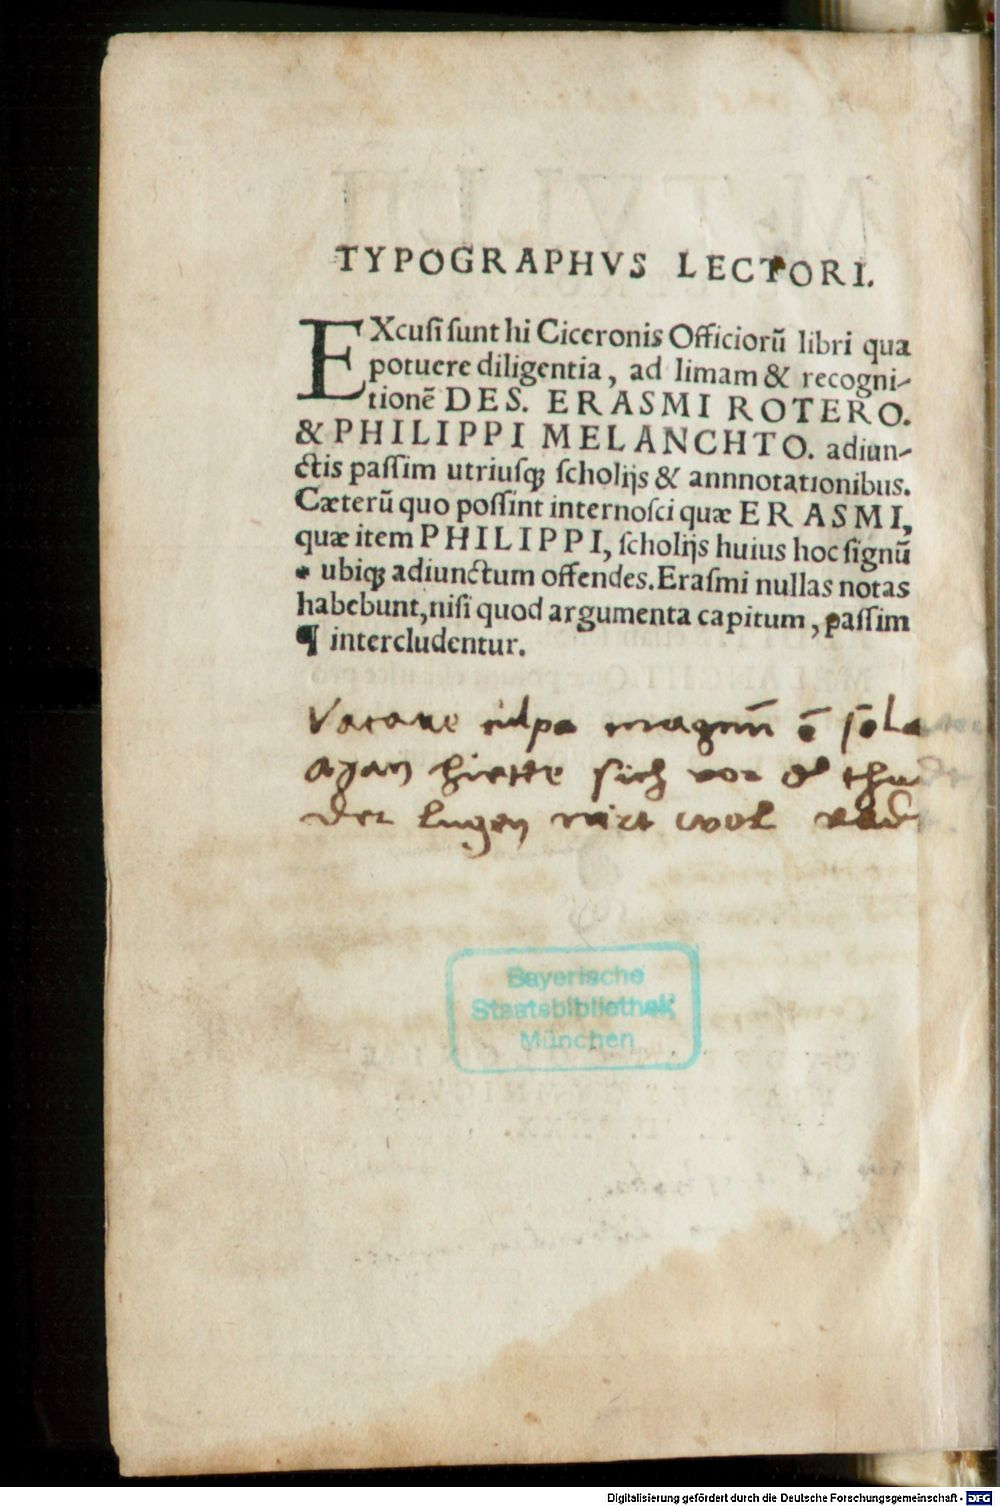 TYPOGRAPHVS LECTORI.
EXcusi sunt hi Ciceronis Officiorũ libri qua
potuere diligentia, ad limam & recogni-
tionẽ DES. ERASMI ROTERO.
& PHILIPPI MELANCHTO. adiun-
ctis passim utriusq; scholijs & annnotationibus.
Cæterũ quo possint internosci quæ ERASMI,
quæ item PHILIPPI, scholijs huius hoc signũ
* ubiq; adiunctum offendes. Erasmi nullas notas
habebunt, nisi quod argumenta capitum, passim
¶ intercludentur.
Vacare culpa magnũ ē
hiette sich vor
der lugen wol
Bayerische
Staatsbibliothek
München
Digitalisierung gefördert durch die Deutsche Forschungsgemeinschaft - DFG